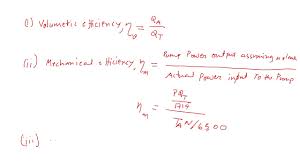 (i) Volumetric efficiency, η_v = Q_A / Q_T
(ii) Mechanical efficiency, η_m = Pump Power output assuming no / Actual Power input to the Pump
η_m = (PQ_T / 1714) / (T_A N / 6300)
(iii)